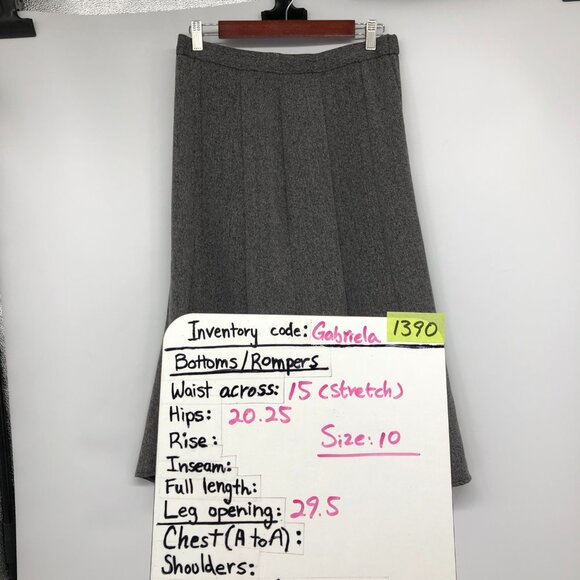 Inventory code: Gabriela 1390
Bottoms/Rompers
Waist across: 15 (stretch)
Hips: 20.25
Rise: Size: 10
Inseam:
Full length:
Leg opening: 29.5
Chest (A to A):
Shoulders: